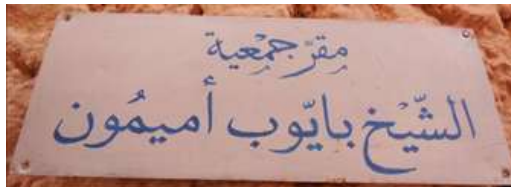 مقرّ جمْعية
الشّيْخ بايّوب أميمُون